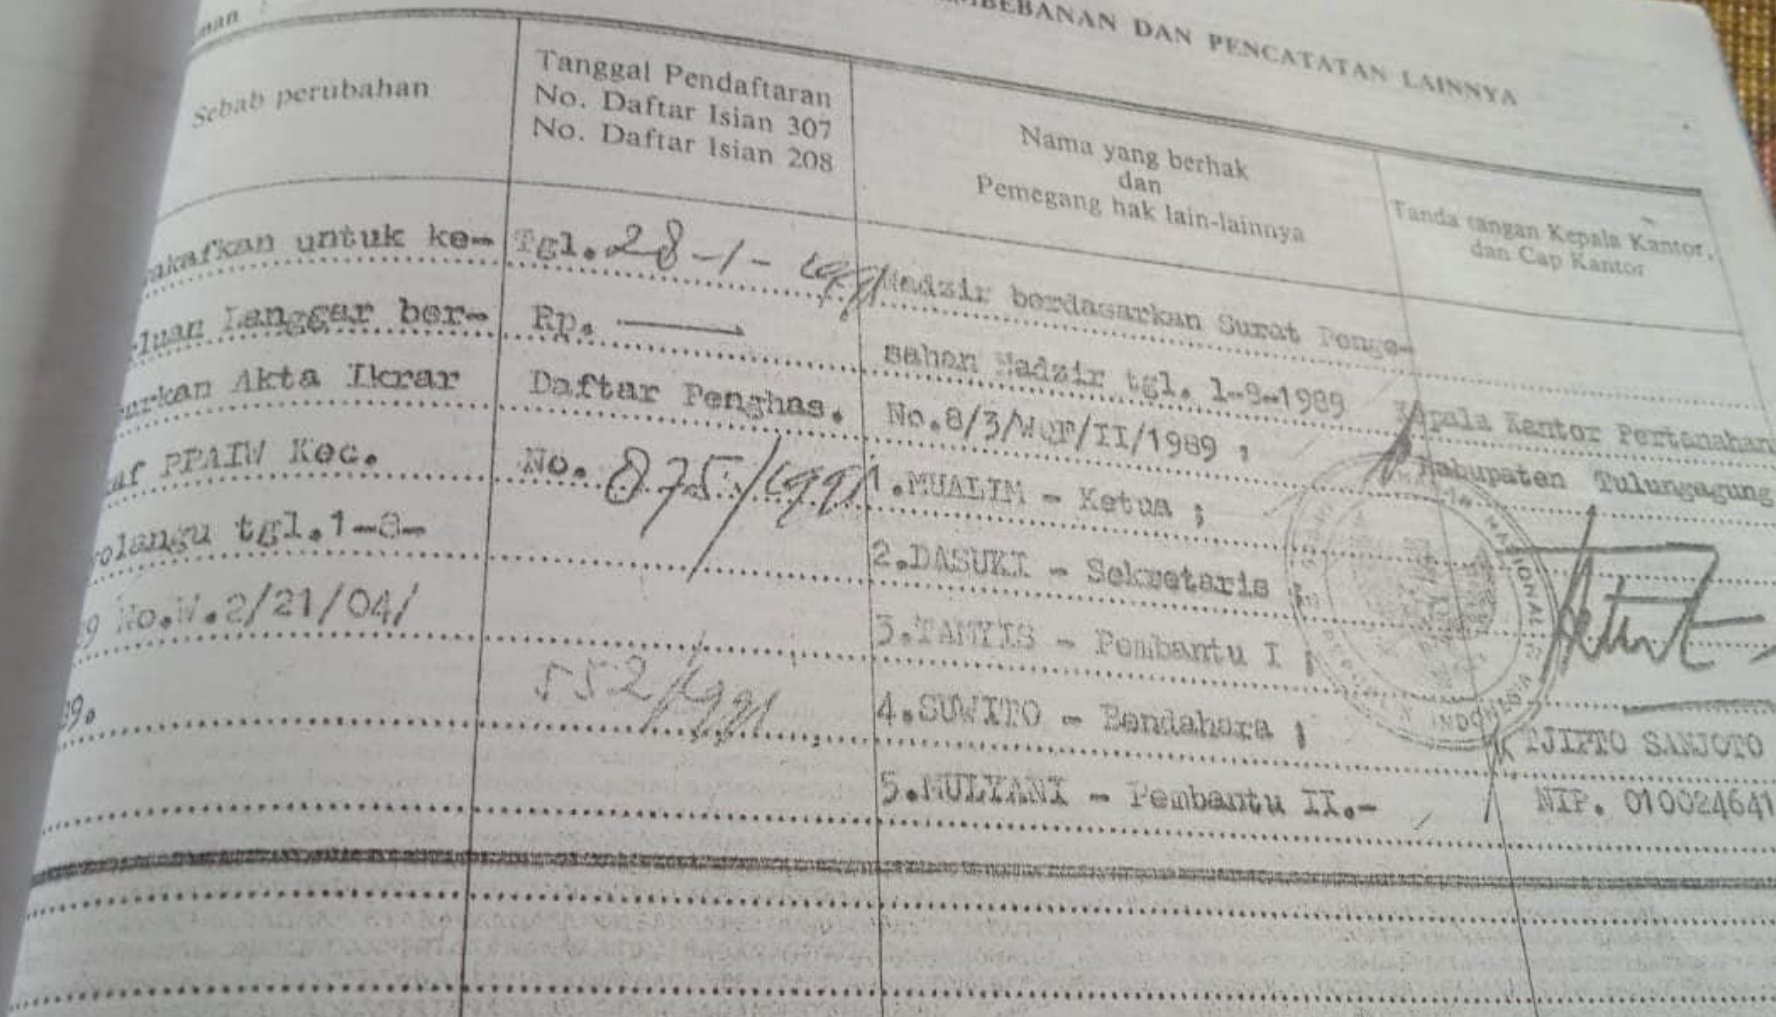 MBEBANAN DAN PENCATATAN LAINNYA
man :
Sebab perubahan
Tanggal Pendaftaran
No. Daftar Isian 307
No. Daftar Isian 208
Nama yang berhak
dan
Pemegang hak lain-lainnya
Tanda tangan Kepala Kantor,
dan Cap Kantor
akafkan untuk ke-
rluan Langgar ber-
arkan Akta Ikrar
af PPAIW Kec.
olangu tgl.1-8-
9 No.W.2/21/04/
89.
Tgl. 28-1-1991
Rp. ———
Daftar Penghas.
No. 875/1991
552/1991
Nadzir berdasarkan Surat Penge-
sahan Nadzir tgl. 1-8-1989
No.8/3/WQF/II/1989 ;
1.MUALIM - Ketua ;
2.DASUKI - Sekretaris ;
3.TAMYIS - Pembantu I ;
4.SUWITO - Bendahara ;
5.MULYANI - Pembantu II.-
Kepala Kantor Pertanahan
Kabupaten Tulungagung
NASIONAL
INDONESIA
TJIPTO SANJOTO
NIP. 010024641